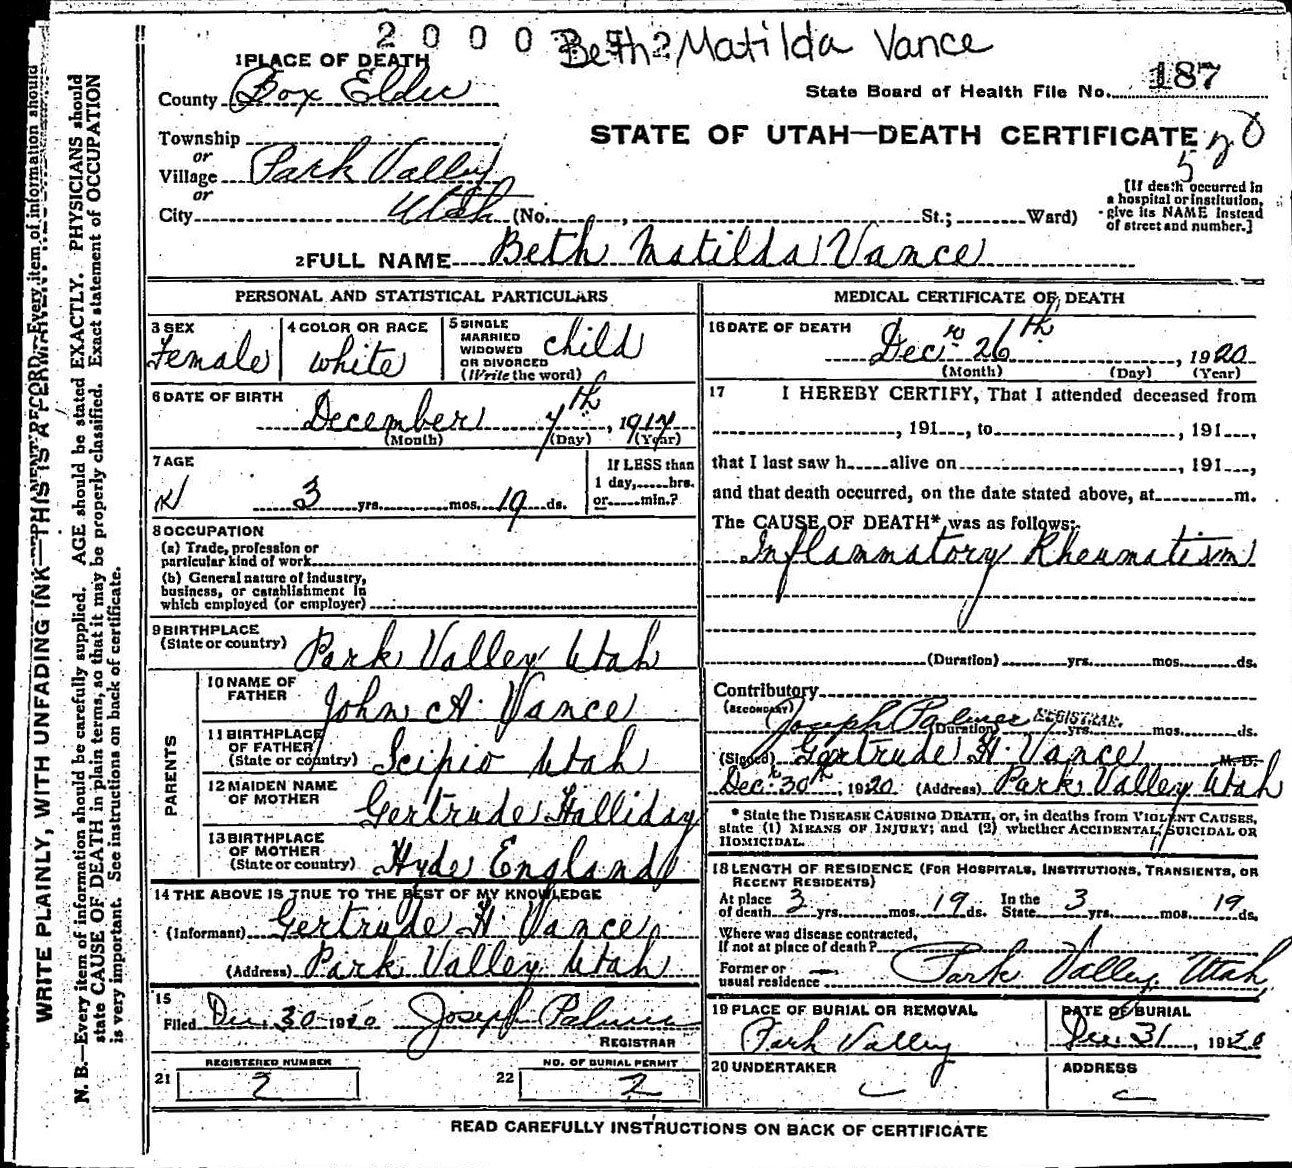 2 0 0 0
Beth Matilda Vance
1 PLACE OF DEATH
County Box Elder
State Board of Health File No. 187
Township
or
Village Park Valley
or
City Utah (No. , St.; Ward)
STATE OF UTAH—DEATH CERTIFICATE
[If death occurred in
a hospital or institution,
give its NAME instead
of street and number.]
2 FULL NAME Beth Matilda Vance
PERSONAL AND STATISTICAL PARTICULARS
3 SEX
Female
4 COLOR OR RACE
White
5 SINGLE
MARRIED
WIDOWED
OR DIVORCED
(Write the word)
child
6 DATE OF BIRTH
December 7th, 1917
(Month) (Day) (Year)
7 AGE
3 yrs. mos. 19 ds.
If LESS than
1 day, hrs.
or min.?
8 OCCUPATION
(a) Trade, profession or
particular kind of work
(b) General nature of industry,
business, or establishment in
which employed (or employer)
9 BIRTHPLACE
(State or country) Park Valley Utah
PARENTS
10 NAME OF
FATHER John A. Vance
11 BIRTHPLACE
OF FATHER
(State or country) Scipio Utah
12 MAIDEN NAME
OF MOTHER Gertrude Halliday
13 BIRTHPLACE
OF MOTHER
(State or country) Hyde England
14 THE ABOVE IS TRUE TO THE BEST OF MY KNOWLEDGE
(Informant) Gertrude H Vance
(Address) Park Valley Utah
15
Filed Dec. 30 1920 Joseph Palmer
REGISTRAR
REGISTERED NUMBER
21 2
NO. OF BURIAL PERMIT
22 2
MEDICAL CERTIFICATE OF DEATH
16 DATE OF DEATH
Decr 26th, 1920
(Month) (Day) (Year)
17 I HEREBY CERTIFY, That I attended deceased from
, 191 , to , 191 ,
that I last saw h alive on , 191 ,
and that death occurred, on the date stated above, at m.
The CAUSE OF DEATH* was as follows:
Inflammatory Rheumatism
(Duration) yrs. mos. ds.
Contributory
(SECONDARY)
Joseph Palmer REGISTRAR.
(Duration) yrs. mos. ds.
(Signed) Gertrude H. Vance M. D.
Dec. 30th, 1920 (Address) Park Valley Utah
* State the DISEASE CAUSING DEATH, or, in deaths from VIOLENT CAUSES,
state (1) MEANS OF INJURY; and (2) whether ACCIDENTAL, SUICIDAL OR
HOMICIDAL.
18 LENGTH OF RESIDENCE (FOR HOSPITALS, INSTITUTIONS, TRANSIENTS, OR
RECENT RESIDENTS)
At place
of death 3 yrs. mos. 19 ds.
In the
State 3 yrs. mos. 19 ds.
Where was disease contracted,
If not at place of death?
Former or
usual residence — Park Valley, Utah
19 PLACE OF BURIAL OR REMOVAL
Park Valley
DATE OF BURIAL
Dec. 31, 1920
20 UNDERTAKER
ADDRESS
READ CAREFULLY INSTRUCTIONS ON BACK OF CERTIFICATE
WRITE PLAINLY, WITH UNFADING INK—THIS IS A PERMANENT RECORD
N. B.—Every item of information should be carefully supplied. AGE should be stated EXACTLY. PHYSICIANS should
state CAUSE OF DEATH in plain terms, so that it may be properly classified. Exact statement of OCCUPATION
is very important. See instructions on back of certificate.